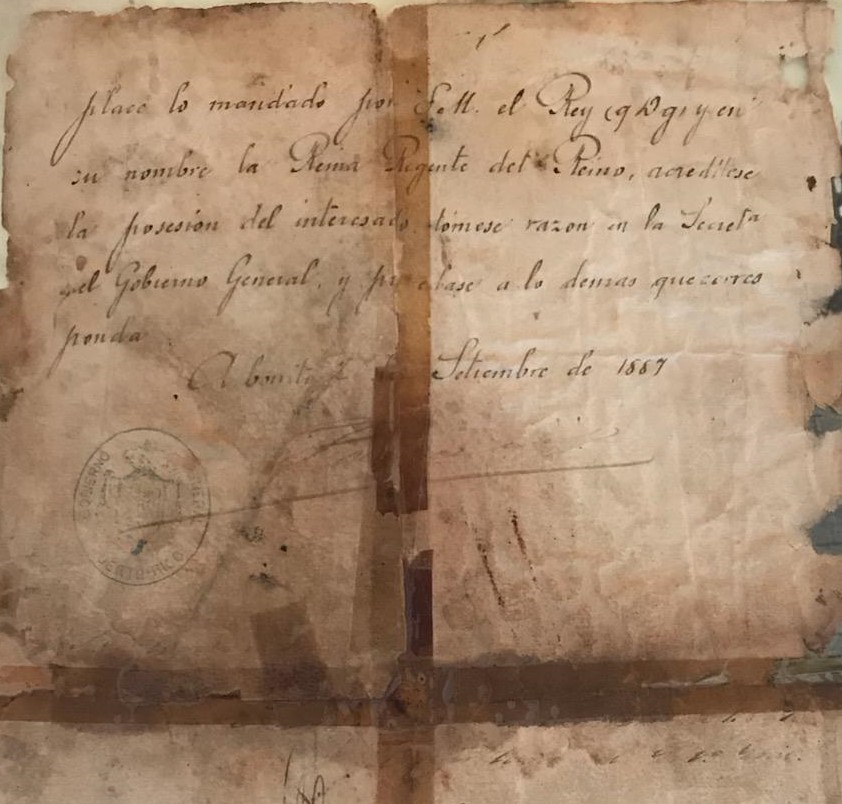 plase lo mandado por S. M. el Rey (q D g) y en
su nombre la Reina Regente del Reino, acreditese
la posesion del interesado tómese razon en la Secretᵃ
del Gobierno General, y procedase a lo demas que corres
ponda
Aibonito Setiembre de 1887
GOBIERNO GENERAL
PUERTO-RICO